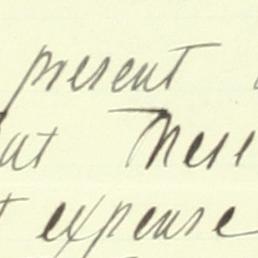 present
but these
t expense